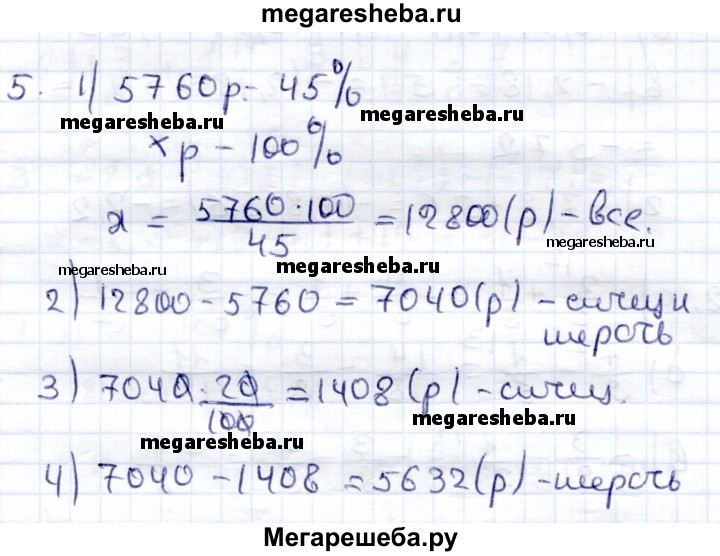 megaresheba.ru
5. 1) 5760 р. - 45%
megaresheba.ru
megaresheba.ru
x р - 100%
x = 5760·100/45 = 12800 (р) - все.
megaresheba.ru
megaresheba.ru
megaresheba.ru
2) 12800 - 5760 = 7040 (р) - ситец и
шерсть
3) 7040·20/100 = 1408 (р) - ситец.
megaresheba.ru
megaresheba.ru
4) 7040 - 1408 = 5632 (р) - шерсть
Мегарешеба.ру